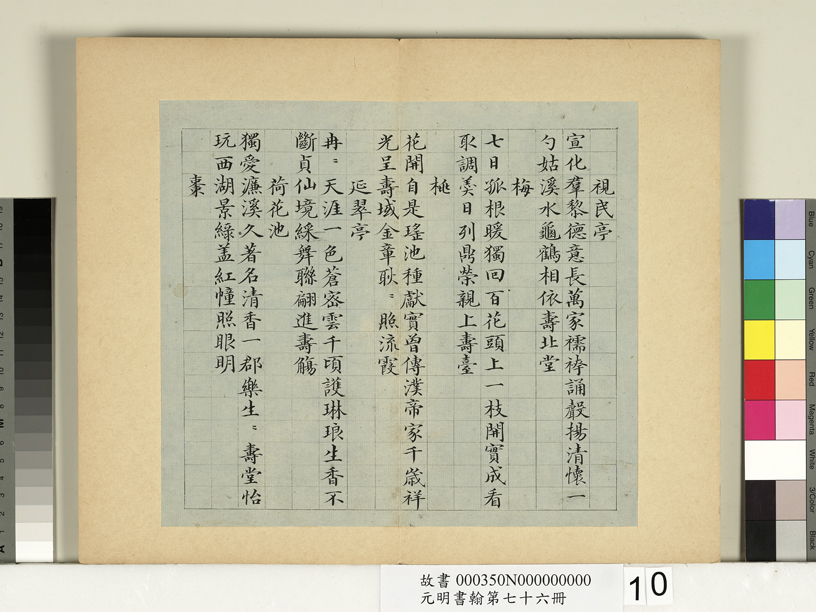 視民亭
宣化羣黎德意長萬家襦袴誦聲揚清懷一
勺姑溪水龜鶴相依壽北堂
梅
七日孤根暖獨回百花頭上一枝開實成看
取調羹日列鼎榮親上壽臺
桃
花開自是瑤池種獻實曾傳漢帝家千歲祥
光呈壽域金章耿〻照流霞
延翠亭
冉〻天涯一色蒼密雲千頃護琳琅生香不
斷貞仙境綵舞聯翩進壽觴
荷花池
獨愛濂溪久著名清香一郡樂生〻壽堂怡
玩西湖景綠蓋紅幢照眼明
棗
故書 000350N000000000
元明書翰第七十六冊
10
Blue
Cyan
Green
Yellow
Red
Magenta
White
3/Color
Black